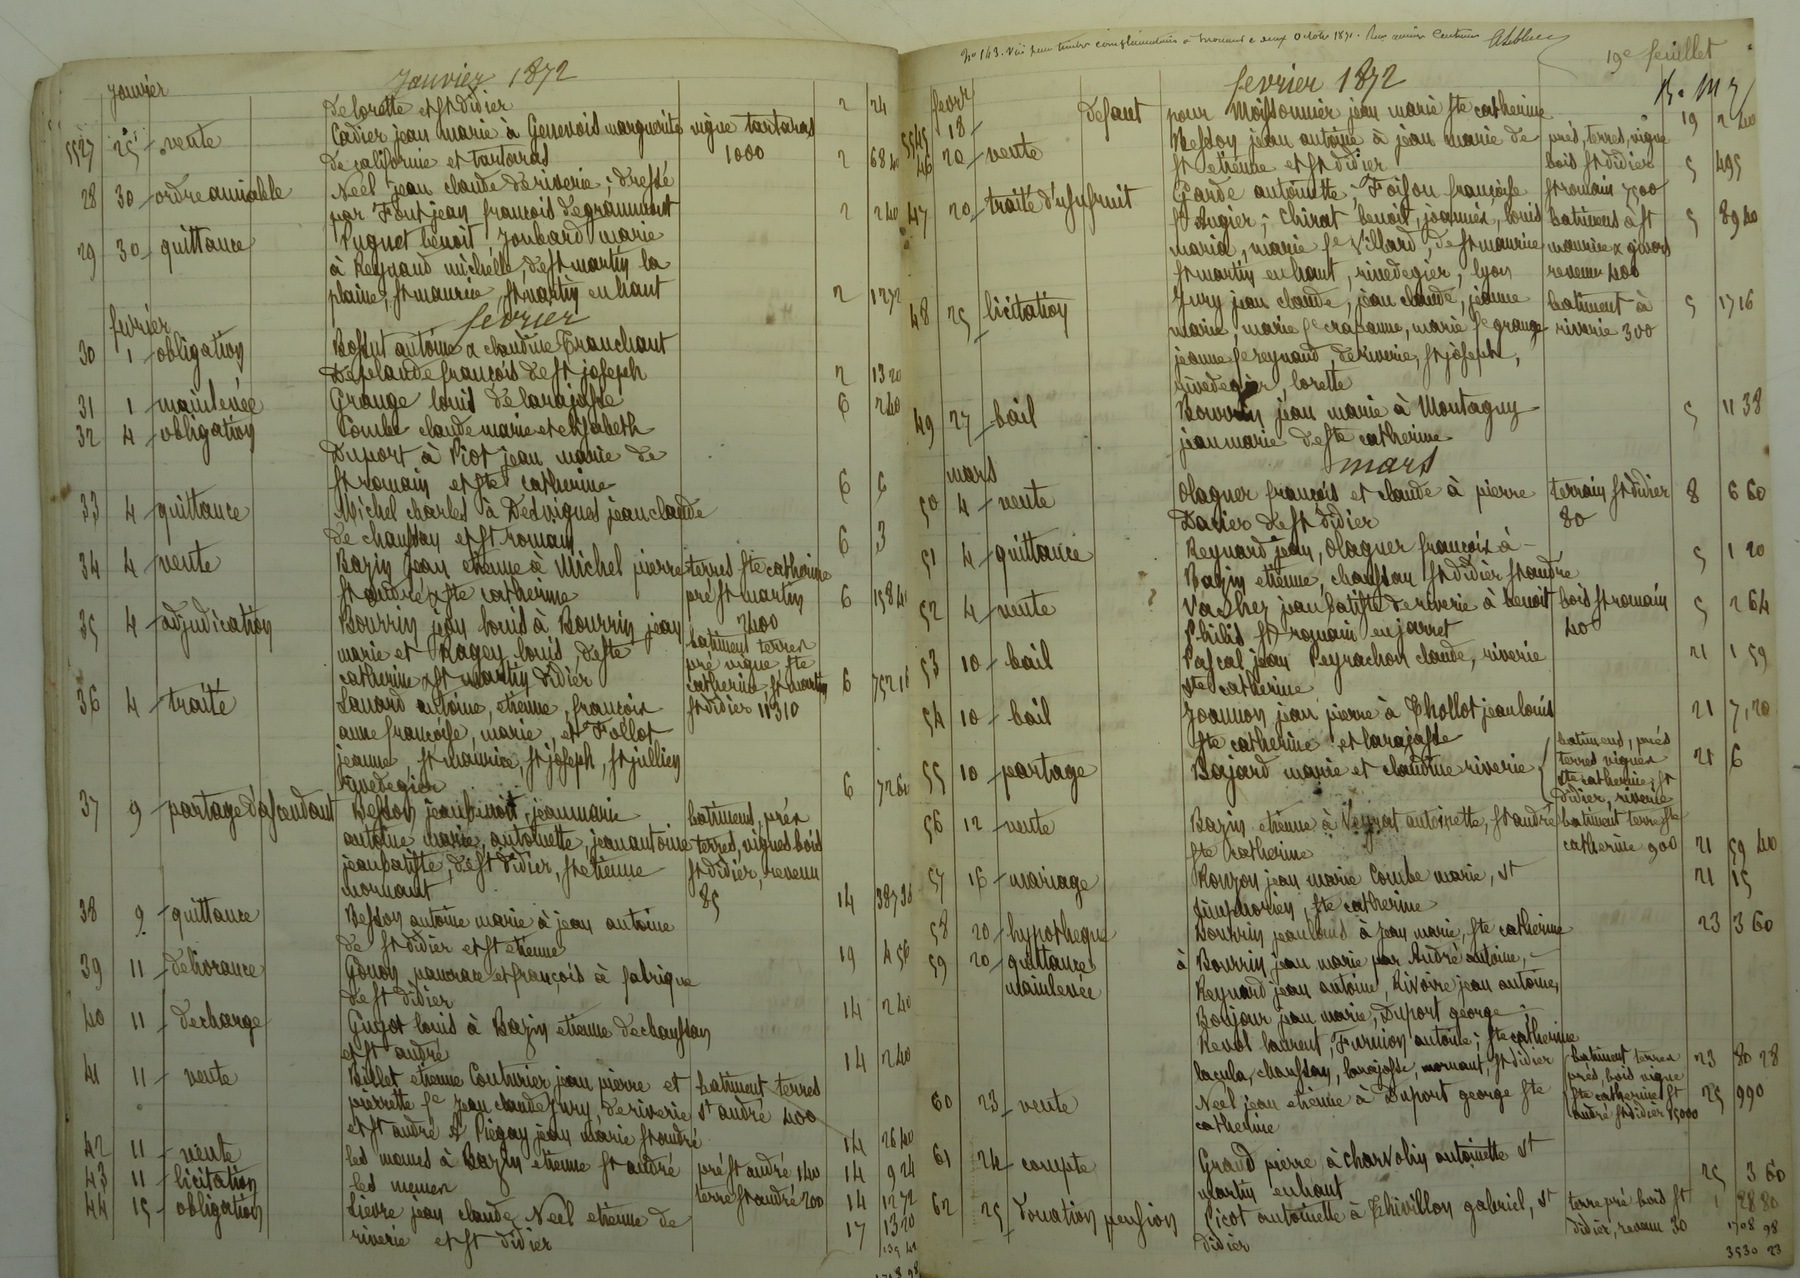 janvier
janvier 1872
de lorette et st didier 2 24
5527 25 vente Cadier jean marie à Genevois marguerite vigne tartaras
de californie et tartaras 1000 2 68 40
28 30 ordre amiable Néel jean claude de riverie ; dressé
par Font jean françois de grammont 2 240
29 30 quittance Puguet benoit Joubard marie
à Reynaud michelle, de st martin la
plaine, st maurice, st martin en haut 2 1272
fevrier
février
30 1 obligation Bossut antoine x claudine Tranchant
Deplaude françois de st joseph 2 1320
31 1 mainlevée Grange louis de larajasse 6 240
32 4 obligation Combe claude marie et elisabeth
Duport à Piot jean marie de
st romain et ste catherine 6 6
33 4 quittance Michel charles à Desvignes jean claude
de chaussan et st romain 6 3
34 4 vente Bazin jean etienne à Michel pierre terres ste catherine
st andré x ste catherine pré st martin 6 158 40
2400
35 4 adjudication Bourrin jean louis à Bourrin jean
marie et Ragey louis, de ste batiment terres
pré vigne ste
catherine x st martin didier catherine, st martin 6 752 16
st didier 11310
36 4 traité Lanard antoine, etienne, françois
anne françoise, marie, et Follot
jeanne st maurice, st joseph, st jullien
rivedegier 6 7260
37 9 partage d'ascendant Besson jean benoit, jean marie batiment, prés
antoine marie, antoinette, jean antoine terres, vignes bois
jean batiste, de st didier, st etienne st didier, revenu
mornant 85 14 387 36
38 9 quittance Besson antoine marie à jean antoine
de st didier et st etienne 19 456
39 11 délivrance Gonon pancrace et françois à fabrique
de st didier 14 240
40 11 decharge Guyot louis à Bazin etienne de chaussan
et st andré 14 240
41 11 vente Billet etienne Couturier jean pierre et batiment terres
pierrette fe jean claude Jury, de riverie st andré 400
et st andré à Piegay jean marie st andré 14 26 40
42 11 vente les memes à Bazin etienne st andré pré st andré 140 14 9 24
43 11 licitation les memes terre st andré 200 14 12 72
44 15 obligation Lievre jean claude Neel etienne de
riverie et st didier 17 13 20
No 143. Vu pour timbre complémentaire à mornant ce deux Octobre 1871.
19e feuillet
fevrier 1872
fevr
5545 18 defaut pour Moissonnier jean marie ste catherine 19 2 40
46 20 vente Besson jean antoine à jean marie de prés, terres, vigne
st etienne et st didier bois st didier 5 495
47 20 traité d'usufruit Garde antoinette ; Foison françoise st romain 7500
st Angier ; Chirat benoit, joannés, louis batimens à st 5 89 40
maria, marie fe Villard, de st maurice maurice x givors
st martin en haut, rivedegier, lyon revenu 400
48 25 licitation Jury jean claude, jean claude, jeanne batiment à 5 1716
marie, marie fe crapanne, marie fe grange riverie 300
jeanne fe reynaud, de riverie, st joseph,
rivedegier, lorette
49 27 bail Bourrin jean marie à Montagny 5 11 38
jean marie de ste catherine
mars
mars
50 4 vente Olagner françois et claude à pierre terrain st didier 8 6 60
Darier de st didier 80
51 4 quittance Reynard jean, Olagner françois à 5 1 20
Bazin etienne, chaussan st didier st andré
52 4 vente Vacher jean batiste de riverie à benoit bois st romain 5 2 64
Philis st romain en jarret 40
53 10 bail Pascal jean Peyrachon claude, riverie 21 1 59
ste catherine
54 10 bail Joannon jean pierre à Thollot jean louis 21 7,20
ste catherine et larajasse
55 10 partage Bajard marie et claudine riverie batimens, prés
terres vignes 21 6
ste catherine st
didier, riverie
56 12 vente Bazin etienne à Veyrat antoinette, st andré batiment terre ste
ste catherine catherine 900 21 59 40
57 16 mariage Ronzon jean marie Combe marie, st 21 15
simphorien, ste catherine
58 20 hypotheque Bourrin jean louis à jean marie, ste catherine 23 3 60
59 20 quittance à Bourrin jean marie par André antoine,
mainlevée Reynard jean antoine, Rivoire jean antoine,
Bonjour jean marie, Duport george
Revol laurent, Furnion antoine ; ste catherine
lacula, chaussan, larajasse, mornant, st didier 23 80 28
60 23 vente Néel jean etienne à Duport george ste batiment terres
prés, bois vigne
catherine ste catherine st
andré st didier 15000 25 990
61 24 compte Grand pierre à charvolin antoinette st
martin en haut 25 3 60
62 25 donation pension Picot antoinette à Thivillon gabriel, st terre pré bois st 28 80
didier didier, revenu 30 1708 98
3530 23